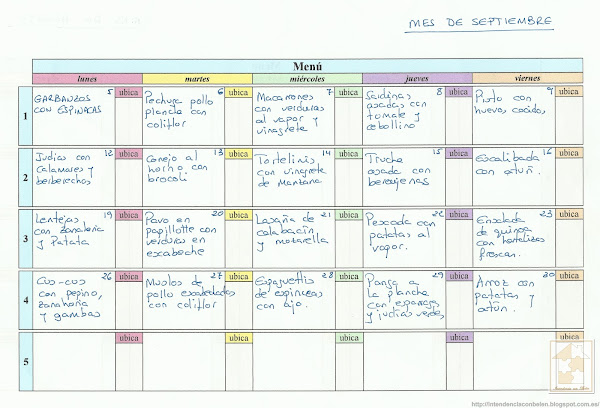 MES DE SEPTIEMBRE
Menú
lunes martes miércoles jueves viernes
1
5 ubica
GARBANZOS
CON ESPINACAS
6 ubica
Pechuga pollo
plancha con
coliflor
7 ubica
Macarrones
con verduras
al vapor y
vinagreta
8 ubica
Sardinas
asadas con
tomate y
cebollino
9 ubica
Pisto con
huevo cocido
2
12 ubica
Judías con
calamares y
berberechos
13 ubica
Conejo al
horno con
brocoli
14 ubica
Tortelinis
con vinagreta
de manzana
15 ubica
Trucha
asada con
berenjenas
16 ubica
Escalibada
con atún.
3
19 ubica
Lentejas
con zanahoria
y Patata
20 ubica
Pavo en
papillotte con
verduras en
escabeche
21 ubica
Lasaña de
calabacín
y mozarella
22 ubica
Pescada con
patatas al
vapor.
23 ubica
Ensalada
de quinoa
con hortalizas
frescas.
4
26 ubica
Cus-cus
con pepino,
zanahoria
y gambas
27 ubica
Muslos de
pollo
con coliflor
28 ubica
Espaguettis
de espinacas
con ajo.
29 ubica
a la
plancha
con espárragos
y judías verdes
30 ubica
Arroz con
patatas y
atún.
5
ubica ubica ubica ubica ubica
http://intendenciaconbelen.blogspot.com.es/